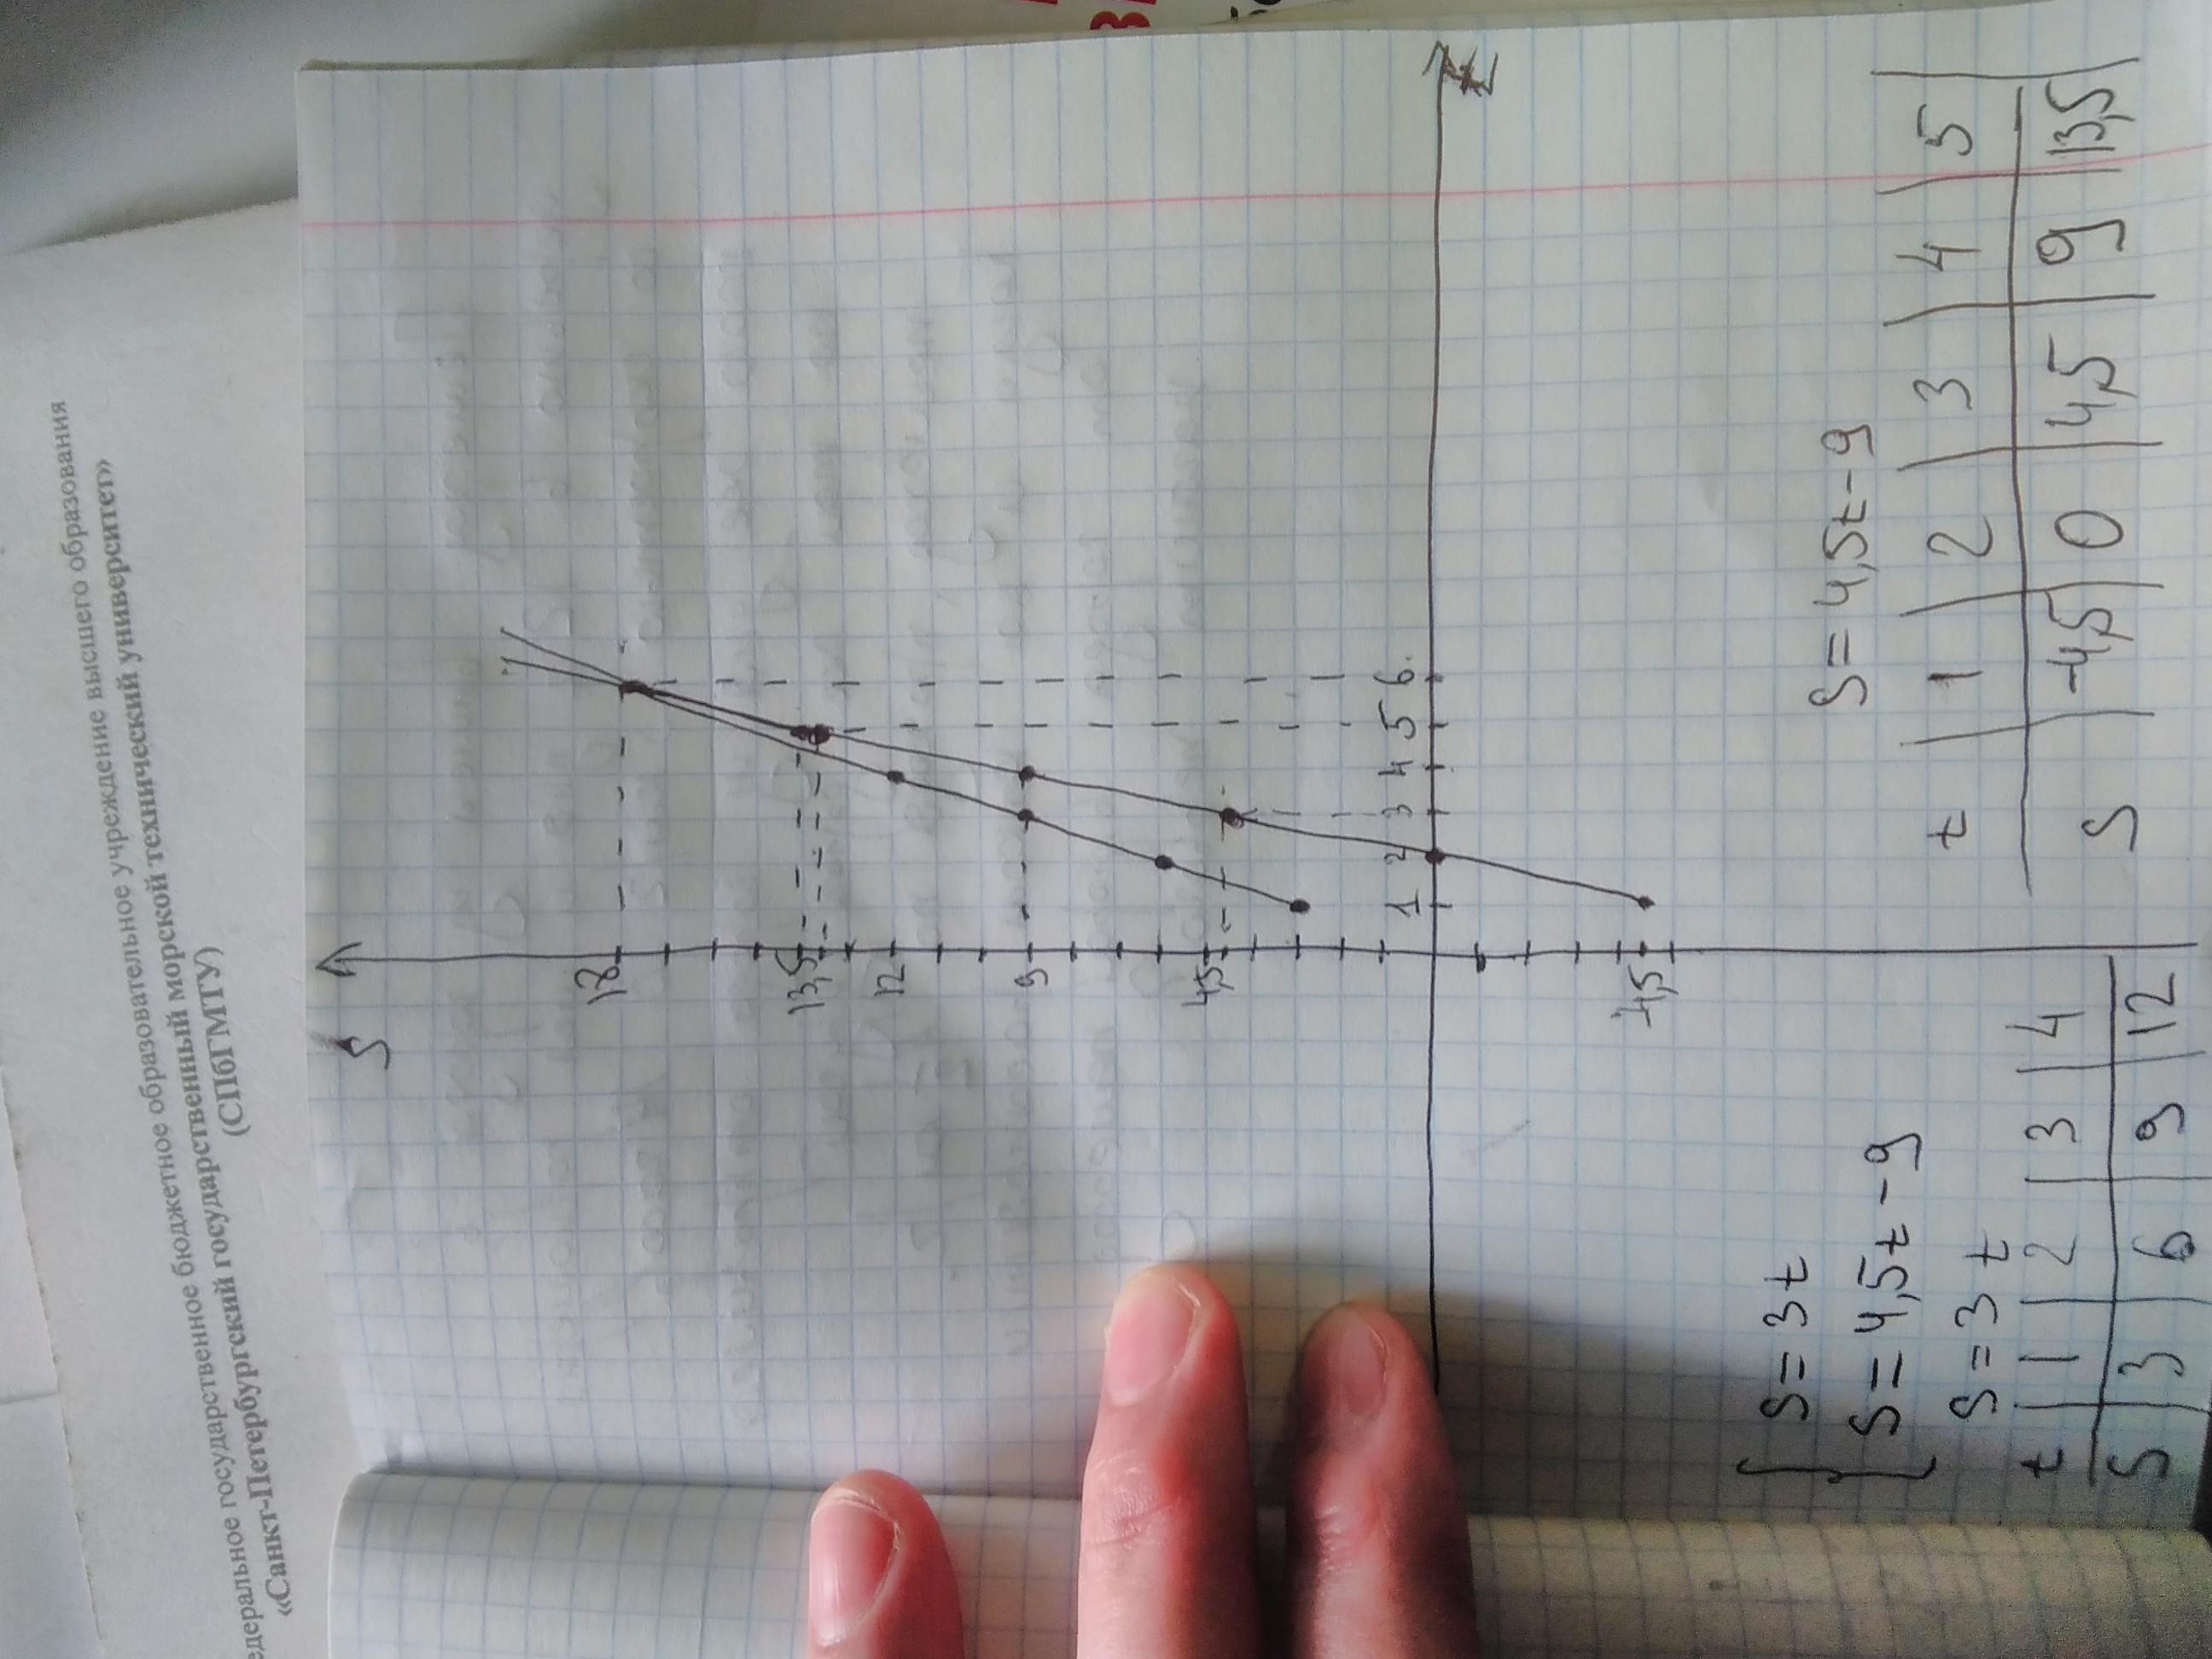 Федеральное государственное бюджетное образовательное учреждение высшего образования
«Санкт-Петербургский государственный морской технический университет»
(СПбГМТУ)
S
18
13,5
12
9
4,5
-4,5
1 2 3 4 5 6
t
S=3t
S=4,5t-9
S=3t
t 1 2 3 4
S 3 6 9 12
S=4,5t-9
t 1 2 3 4 5
S -4,5 0 4,5 9 13,5